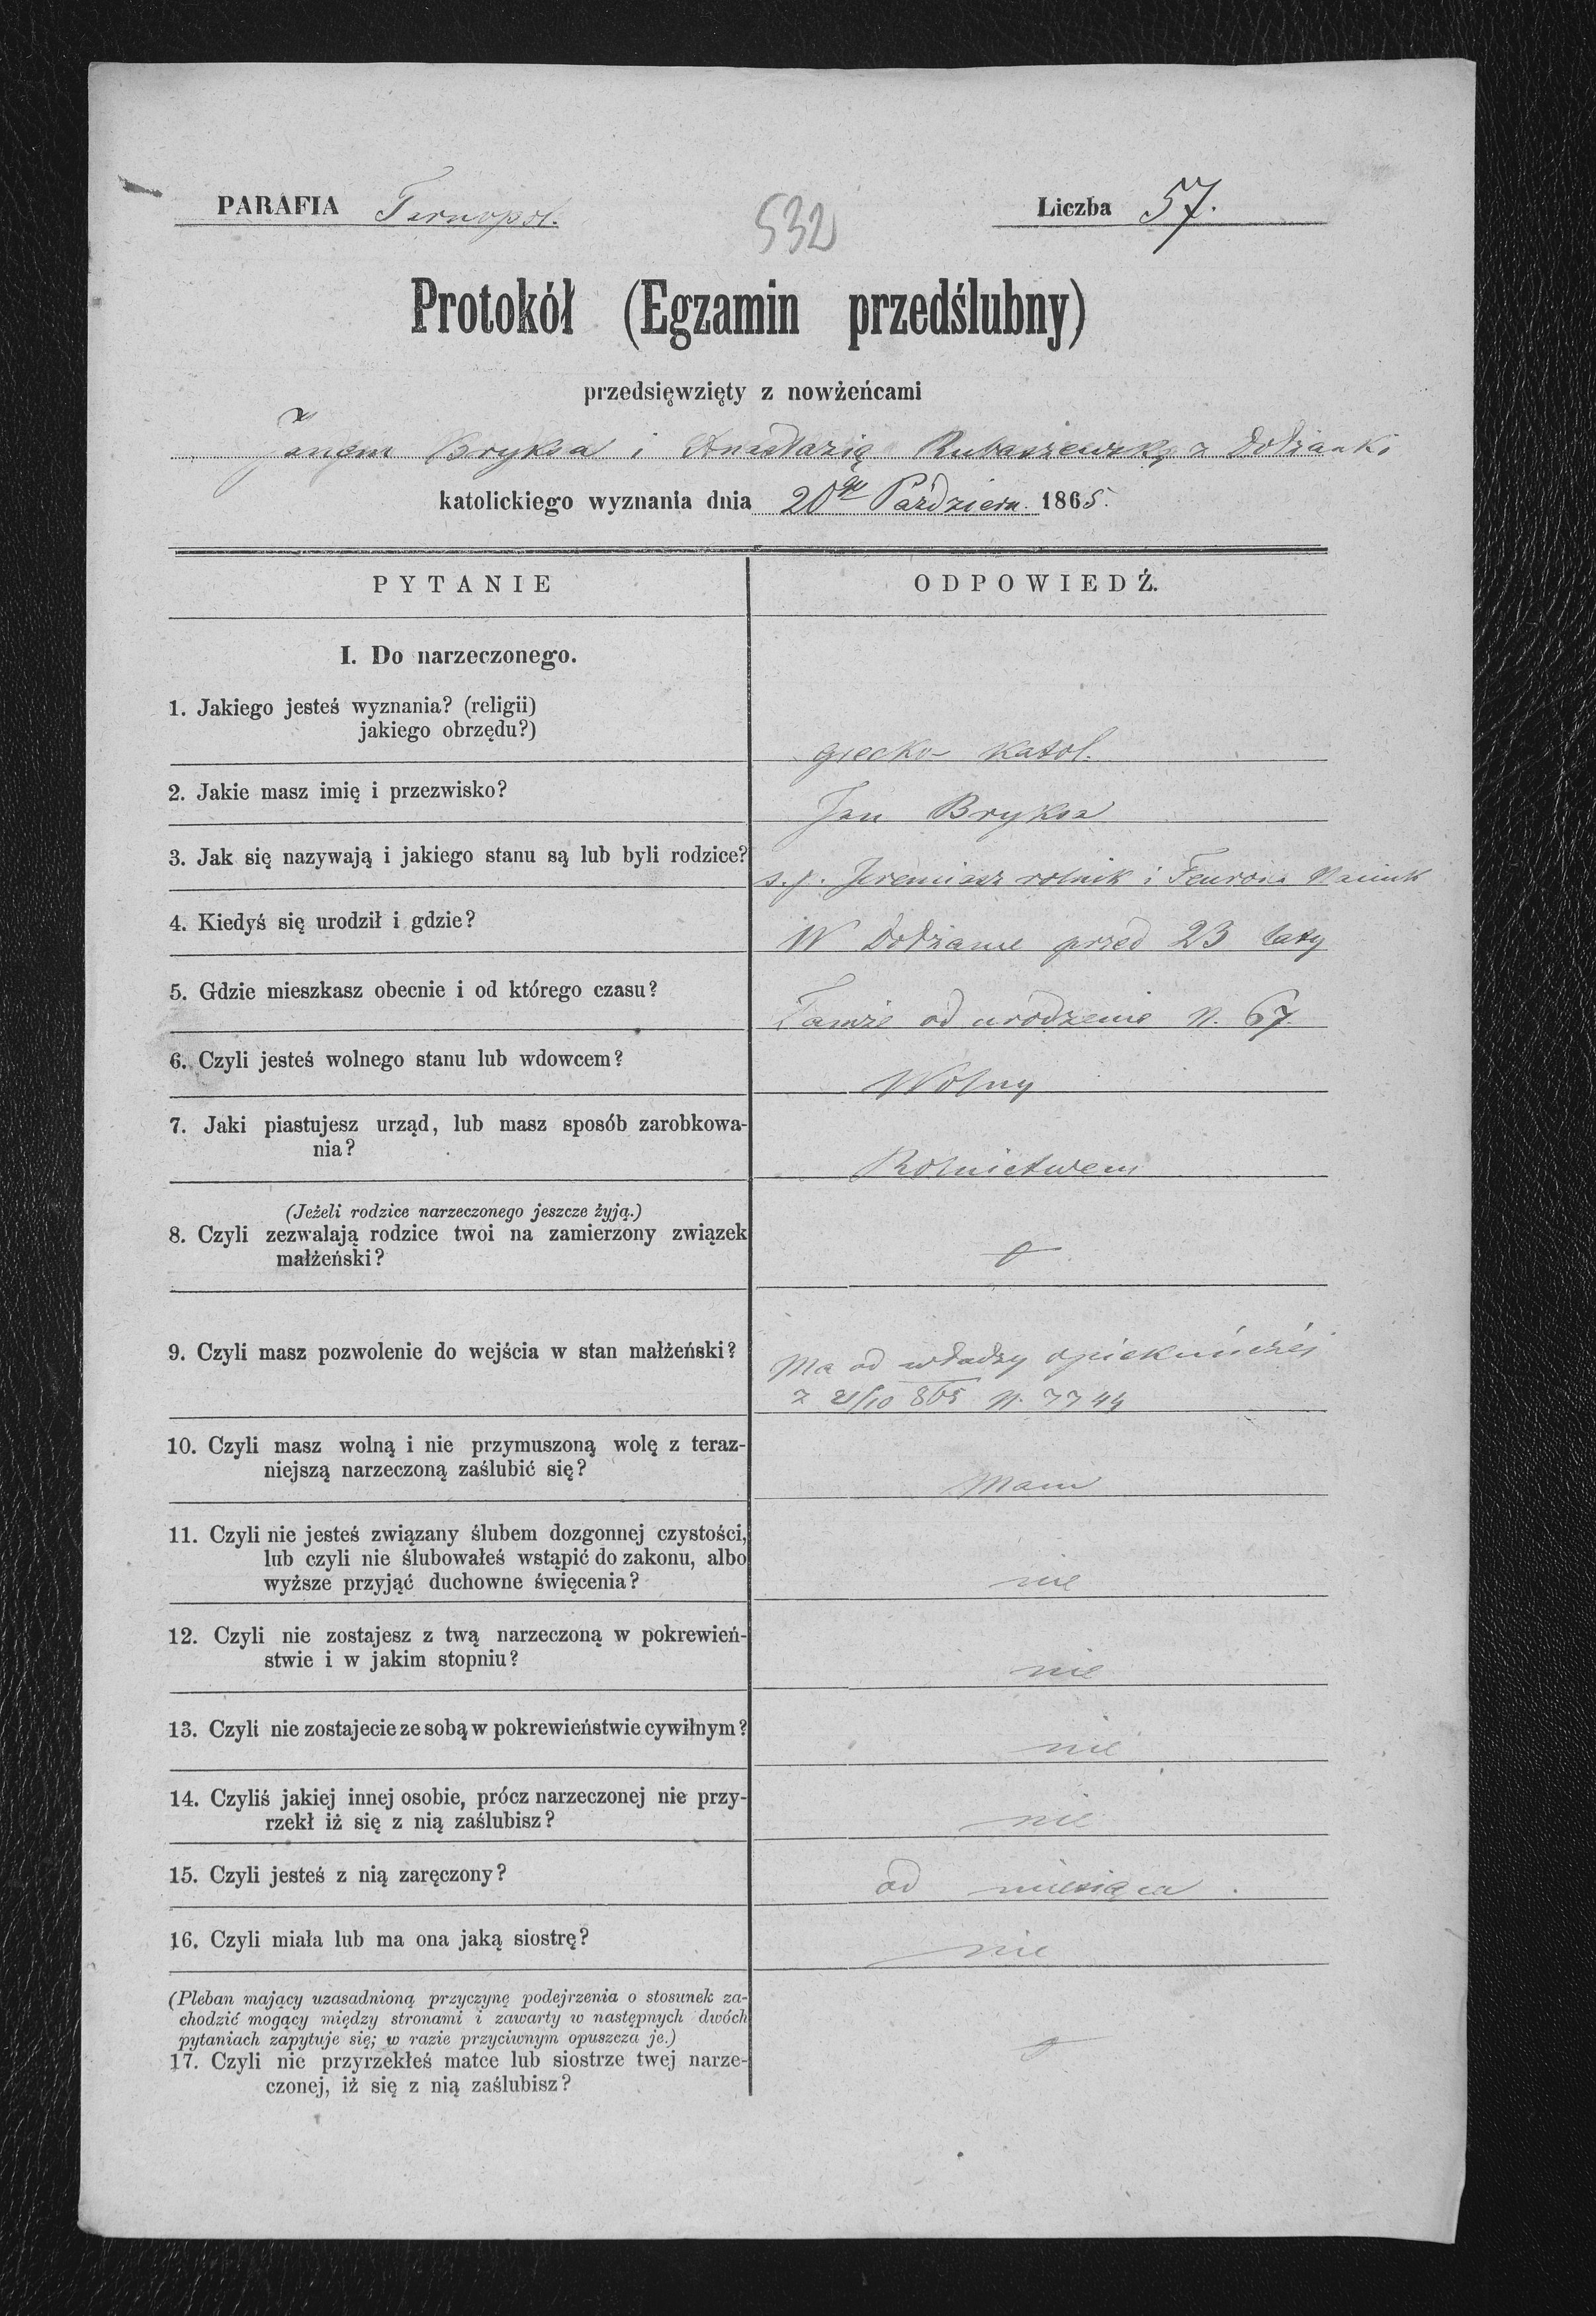 PARAFIA Tarnopol.
532
Liczba 57.
Protokół (Egzamin przedślubny)
przedsięwzięty z nowżeńcami
Janem Bryksa i Anastazią z Dołżanki
katolickiego wyznania dnia 20go Październ. 1865.
PYTANIE
ODPOWIEDŹ.
I. Do narzeczonego.
1. Jakiego jesteś wyznania? (religii)
jakiego obrzędu?)
grecko katol.
2. Jakie masz imię i przezwisko?
Jan Bryksa
3. Jak się nazywają i jakiego stanu są lub byli rodzice?
s.p. Jeremiasz rolnik i
4. Kiedyś się urodził i gdzie?
W Dołżance przed 23 laty
5. Gdzie mieszkasz obecnie i od którego czasu?
Tamże od urodzenia N. 67.
6. Czyli jesteś wolnego stanu lub wdowcem?
Wolny
7. Jaki piastujesz urząd, lub masz sposób zarobkowa-
nia?
Rolnictwem
(Jeżeli rodzice narzeczonego jeszcze żyją.)
8. Czyli zezwalają rodzice twoi na zamierzony związek
małżeński?
9. Czyli masz pozwolenie do wejścia w stan małżeński?
Ma od władzy opiekuńczéj
z 21/10 865 N. 7744
10. Czyli masz wolną i nie przymuszoną wolę z teraz-
niejszą narzeczoną zaślubić się?
Mam
11. Czyli nie jesteś związany ślubem dozgonnej czystości,
lub czyli nie ślubowałeś wstąpić do zakonu, albo
wyższe przyjąć duchowne święcenia?
nie
12. Czyli nie zostajesz z twą narzeczoną w pokrewień-
stwie i w jakim stopniu?
nie
13. Czyli nie zostajecie ze sobą w pokrewieństwie cywilnym?
nie
14. Czyliś jakiej innej osobie, prócz narzeczonej nie przy-
rzekł iż się z nią zaślubisz?
nie
15. Czyli jesteś z nią zaręczony?
od miesiąca.
16. Czyli miała lub ma ona jaką siostrę?
nie
(Pleban mający uzasadnioną przyczynę podejrzenia o stosunek za-
chodzić mogący między stronami i zawarty w następnych dwóch
pytaniach zapytuje się; w razie przyciwnym opuszcza je.)
17. Czyli nie przyrzekłeś matce lub siostrze twej narze-
czonej, iż się z nią zaślubisz?